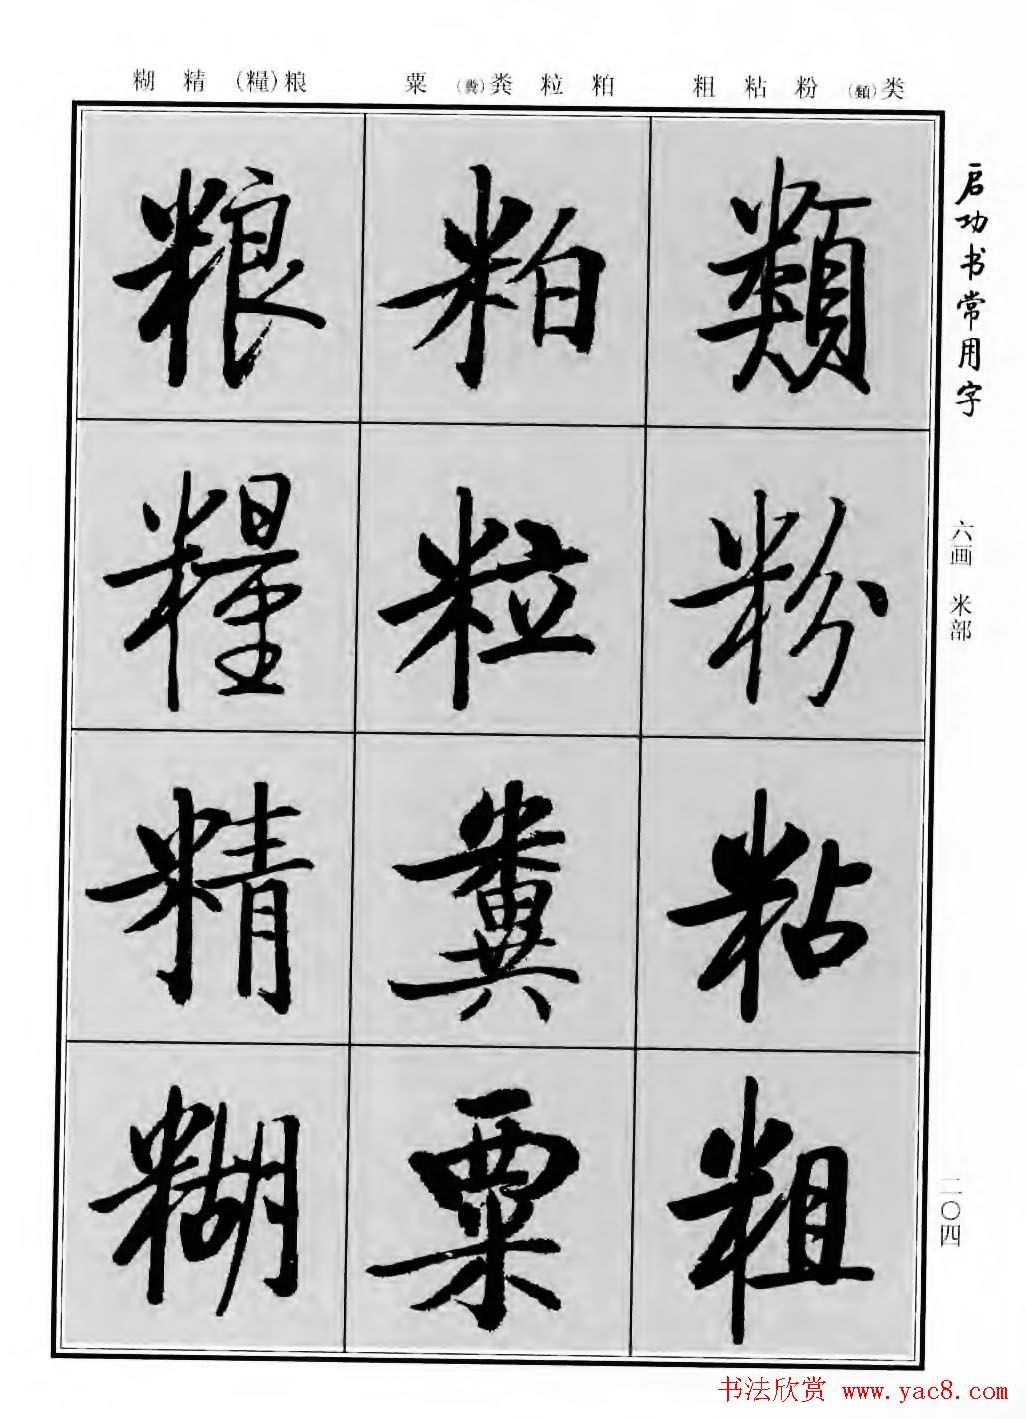 类(類)粉粘粗
粕粒粪(糞)粟
粮(糧)精糊
启功书常用字
六画 米部
二〇四
類粉粘粗
粕粒糞粟
粮糧精糊
书法欣赏 www.yac8.com